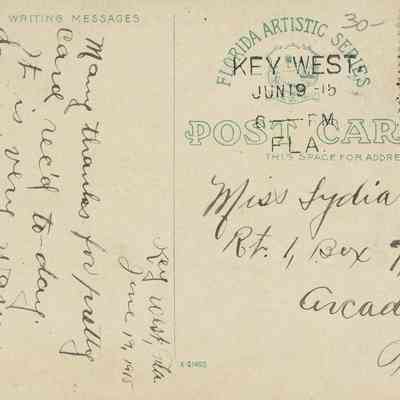 WRITING MESSAGES
Key West, Fla
June 19, 1915
Many thanks for pretty
card rec'd to-day.
It is very warm
FLORIDA ARTISTIC SERIES
30-
KEY WEST
JUN 19 - 15
6 PM
FLA.
POST CAR
THIS SPACE FOR ADDRE
Miss Lydia
Rt. 1, Box
Arcad